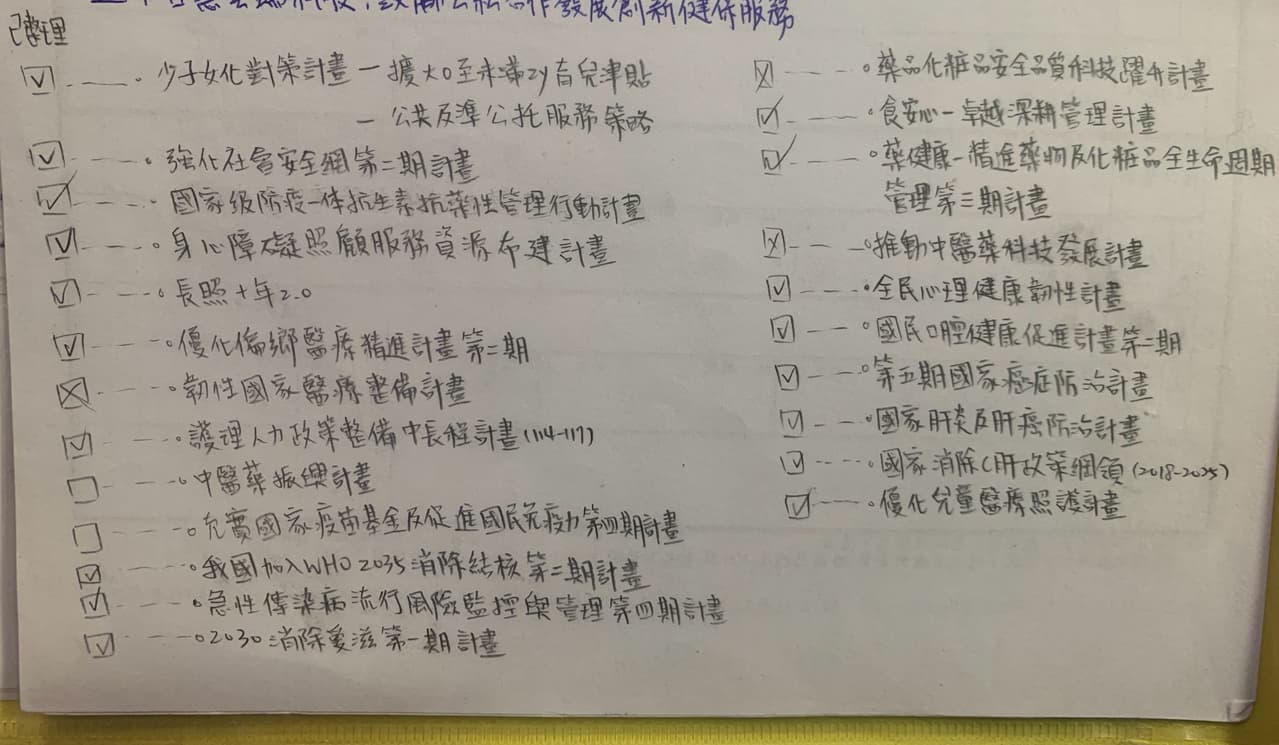 公私合作發展創新健保服務
已整理
☑ 少子女化對策計畫 — 擴大0至未滿2y育兒津貼
— 公共及準公托服務策略
☑ 強化社會安全網第二期計畫
☑ 國家級防疫一体抗生素抗藥性管理行動計畫
☑ 身心障礙照顧服務資源布建計畫
☑ 長照十年2.0
☑ 優化偏鄉醫療精進計畫第二期
☒ 韌性國家醫療整備計畫
☑ 護理人力政策整備中長程計畫(114-117)
☐ 中醫藥振興計畫
☐ 充實國家疫苗基金及促進國民免疫力第四期計畫
☑ 我國加入WHO 2035消除結核第二期計畫
☑ 急性傳染病流行風險監控與管理第四期計畫
☑ 2030消除愛滋第一期計畫
☒ 藥品化粧品安全品質科技躍升計畫
☑ 食安心-卓越深耕管理計畫
☑ 藥健康-精進藥物及化粧品全生命週期
管理第三期計畫
☒ 推動中醫藥科技發展計畫
☑ 全民心理健康韌性計畫
☑ 國民口腔健康促進計畫第二期
☑ 第五期國家癌症防治計畫
☑ 國家肝炎及肝癌防治計畫
☑ 國家消除C肝政策綱領(2018-2025)
☑ 優化兒童醫療照護計畫